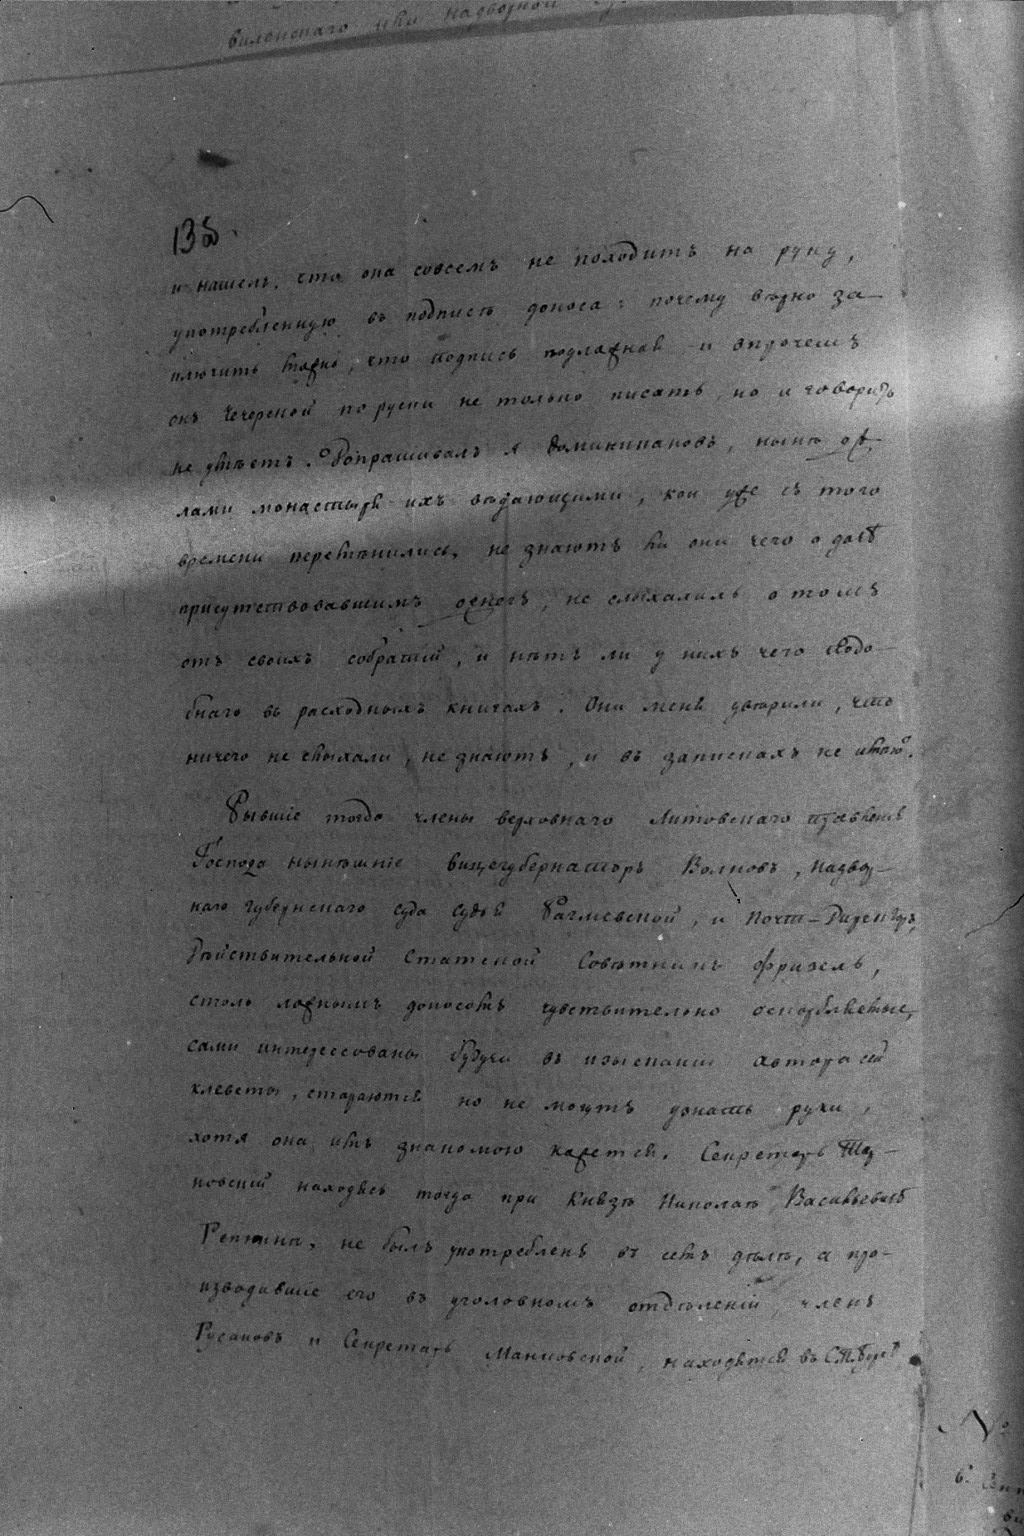 виленскаго или надворной
135.
и нашелъ, что она совсемъ не походитъ на руку,
употребленную въ подписи доноса: почему вѣрно за-
ключить можно, что подпись подложная и впрочемъ
онъ Чечерской по руски не только писать, но и говорить
не умѣетъ. Допрашивалъ я Доминикановъ, нынѣ дѣ-
лами монастыря ихъ вѣдающими, кои уже съ того
времени перемѣнились, не знаютъ ли они чего о
присутствовавшимъ, не слыхали ль о томъ
отъ своихъ собратий, и нѣтъ ли у нихъ чего подо-
бнаго въ расходныхъ книгахъ. Они меня уверили, что
ничего не слыхали, не знаютъ, и въ запискахъ не имѣютъ.
Бывшіе тогда члены верховнаго Литовскаго правленія
Господа нынѣшніе вицегубернаторъ Волковъ, надво-
наго губернскаго суда судья, и Почт-Директоръ,
Дѣйствительной Статской Совѣтникъ Фризель,
столь ложнымъ доносомъ чувствительно оскорбляемые,
сами интерессованы будучи въ изысканіи автора сей
клеветы, стараются но не могутъ узнать руки,
хотя она имъ знакомою кажется. Секретарь
новскій находясь тогда при Князѣ Николаѣ Васильевичѣ
Репнинѣ, не былъ употребленъ въ семъ дѣлѣ, а про-
изводившіе его въ уголовномъ отдѣленіи, членъ
Русановъ и Секретарь Манковской, находятся въ С.П.бургѣ
№
6. Сен